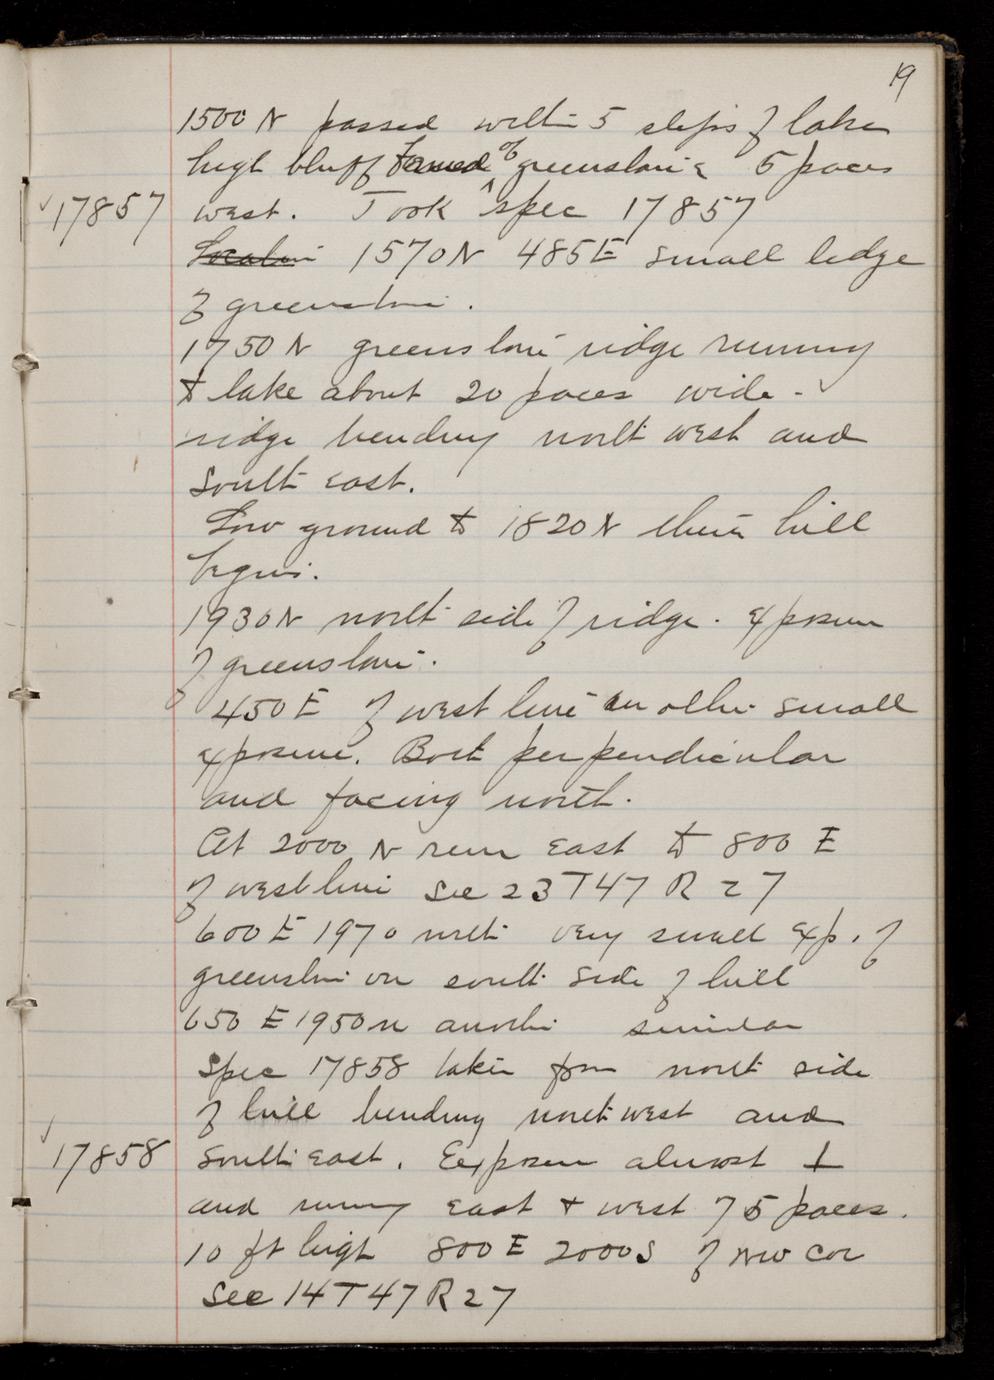 19
1500 N passed within 5 steps of lake
high bluff of greenstone 5 paces
17857 west. Took spec 17857
1570N 485E small ledge
of greenstone.
1750 N greenstone ridge running
to lake about 20 paces wide -
ridge bending north west and
South east.
Low ground to 1820 N then hill
begins.
1930N north side of ridge. Exposure
of greenstone.
450 E of west line another small
exposure. Both perpendicular
and facing north.
At 2000 N run East to 800 E
of west line Sec 23 T47 R 27
600 E 1970 north very small Exp. of
greenstone on south side of hill
650 E 1950 N another similar
Spec 17858 taken from north side
of hill bending north west and
17858 South east. Exposure almost ⊥
and running east + west 75 paces.
10 ft high 800 E 2000 S of NW cor
Sec 14 T 47 R 27